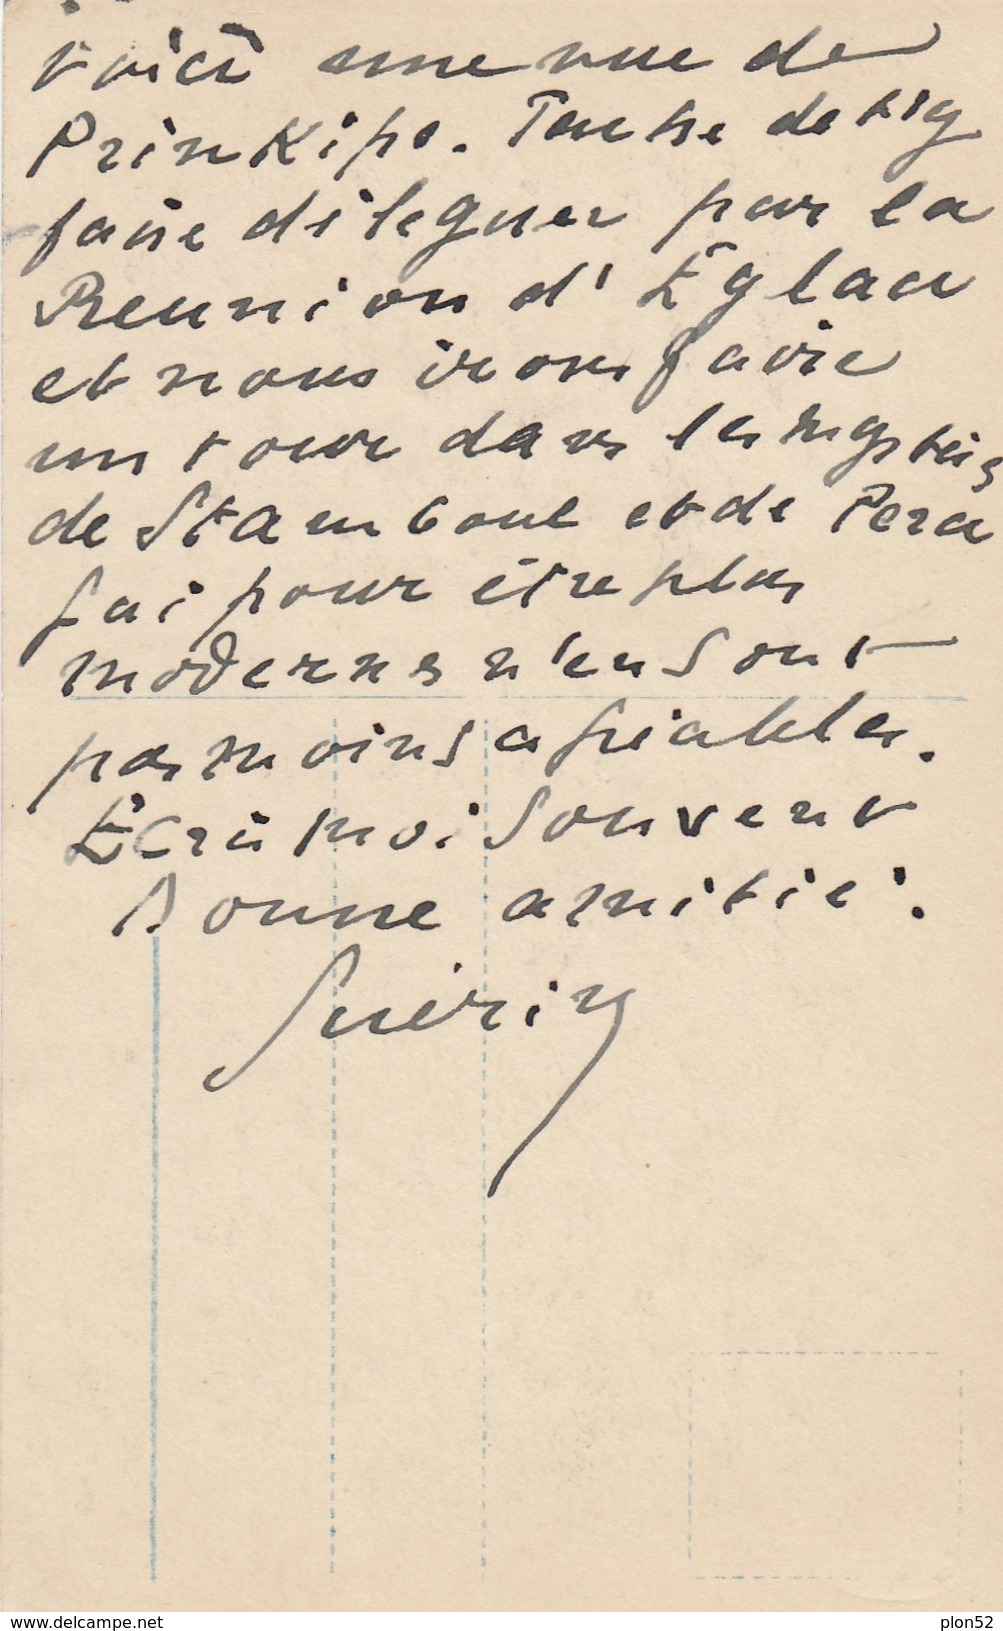 voici une vue de
Prinkipo. Tache de t'y
faire déleguer par la
Reunion d'
et nous irons faire
un tour dans les mysteres
de Stamboul et de Pera
qui pour être plus
modernes n'en sont
pas moins agréables.
Écris moi souvent
Bonne amitié.
Guérin
https://www.delcampe.net
plon52